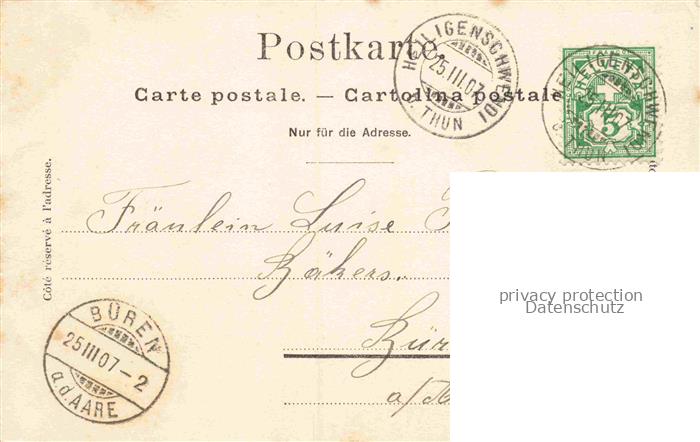 Postkarte
Carte postale. — Cartolina postale
Nur für die Adresse.
Côté réservé à l'adresse.
HEILIGENSCHWENDI
25.III.07
THUN
HELVETIA
5
Fräulein Luise
Bäkers.
Bür
a/A
BÜREN
25III07-2
a.d.AARE
privacy protection
Datenschutz